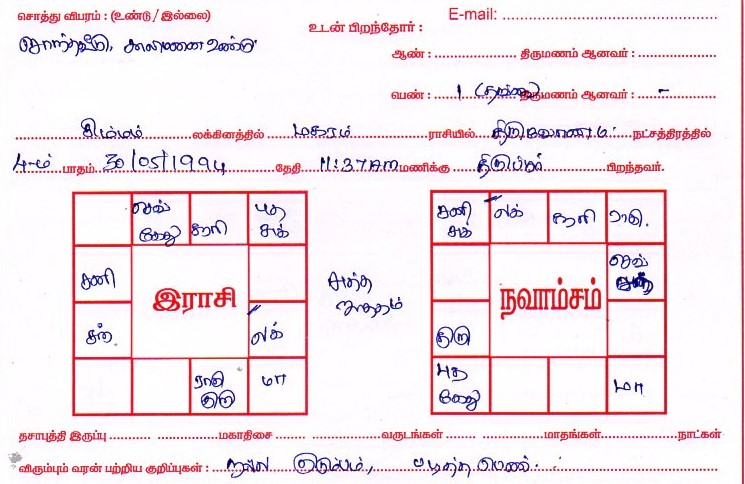 சொத்து விபரம் : (உண்டு / இல்லை)
E-mail:
உடன் பிறந்தோர் :
சொந்தவீடு, காலிமனை உண்டு
ஆண் : திருமணம் ஆனவர் :
பெண் : 1 திருமணம் ஆனவர் : -
சிம்மம் லக்கினத்தில் மகரம் ராசியில் திருவோணம் நட்சத்திரத்தில்
4-ம் பாதம் 30/05/1994 தேதி 11:37AM மணிக்கு திருப்பூர் பிறந்தவர்.
செவ் கேது சூரி புத சுக்
சனி
இராசி
சந்
லக்
ராகு குரு மா
சுத்த ஜாதகம்
சனி சுக் லக் சூரி ராகு
செவ் சந்
நவாம்சம்
குரு
புத கேது மா
தசாபுத்தி இருப்பு மகாதிசை வருடங்கள் மாதங்கள் நாட்கள்
விரும்பும் வரன் பற்றிய குறிப்புகள் : நல்ல குடும்பம், படித்த பெண்.